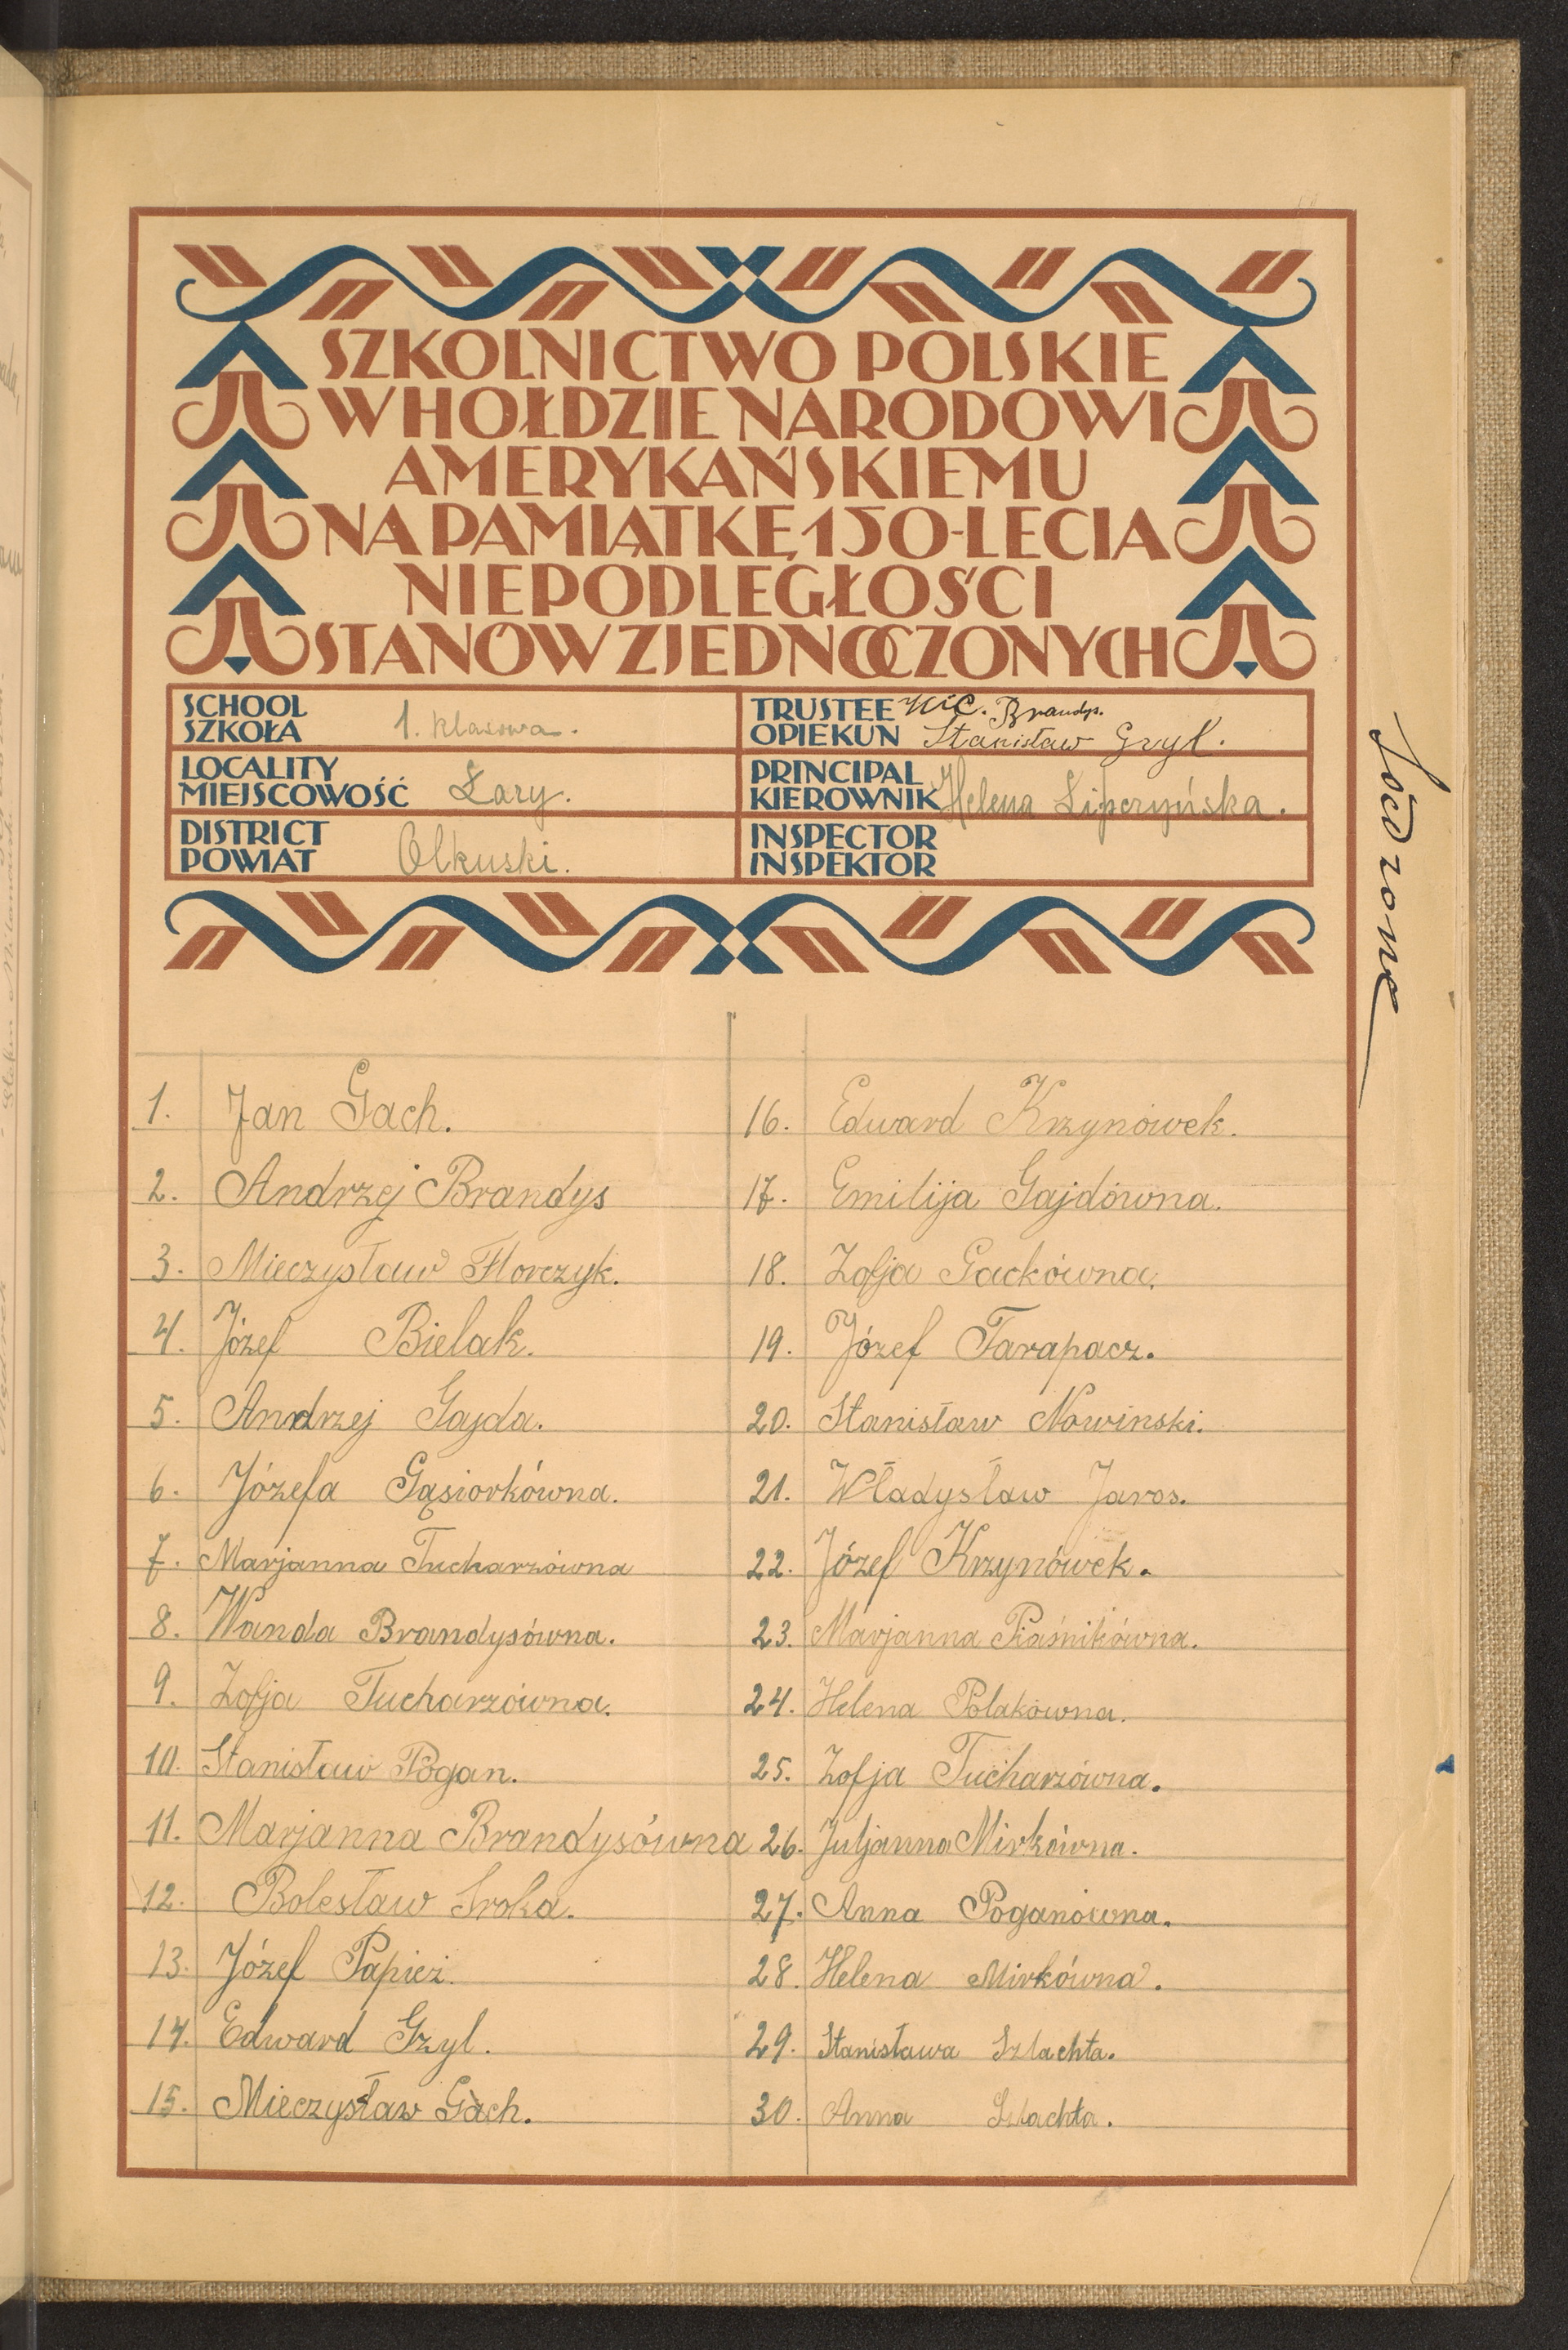 SZKOLNICTWO POLSKIE
W HOŁDZIE NARODOWI
AMERYKAŃSKIEMU
NA PAMIĄTKĘ 150-LECIA
NIEPODLEGŁOŚCI
STANÓW ZJEDNOCZONYCH
SCHOOL
SZKOŁA 1. klasowa.
TRUSTEE Mic. Brandys.
OPIEKUN Stanisław Gzyl.
LOCALITY
MIEJSCOWOŚĆ Łazy.
PRINCIPAL
KIEROWNIK Helena Lipczyńska.
DISTRICT
POWIAT Olkuski.
INSPECTOR
INSPEKTOR
1. Jan Gach.
2. Andrzej Brandys
3. Mieczysław Florczyk.
4. Józef Bielak.
5. Andrzej Gajda.
6. Józefa Gąsiorkówna.
7. Marjanna Tucharzówna
8. Wanda Brandysówna.
9. Zofja Tucharzówna.
10. Stanisław Pogan.
11. Marjanna Brandysówna
12. Bolesław Sroka.
13. Józef Papież.
14. Edward Gzyl.
15. Mieczysław Gach.
16. Edward Krzynówek.
17. Emilija Gajdówna.
18. Zofja Gackówna.
19. Józef Tarapacz.
20. Stanisław Nowinski.
21. Władysław Jaros.
22. Józef Krzynówek.
23. Marjanna Piaśnikówna.
24. Helena Polakówna.
25. Zofja Tucharzówna.
26. Juljanna Mirkówna.
27. Anna Poganówna.
28. Helena Mirkówna.
29. Stanisława Szlachta.
30. Anna Szlachta.